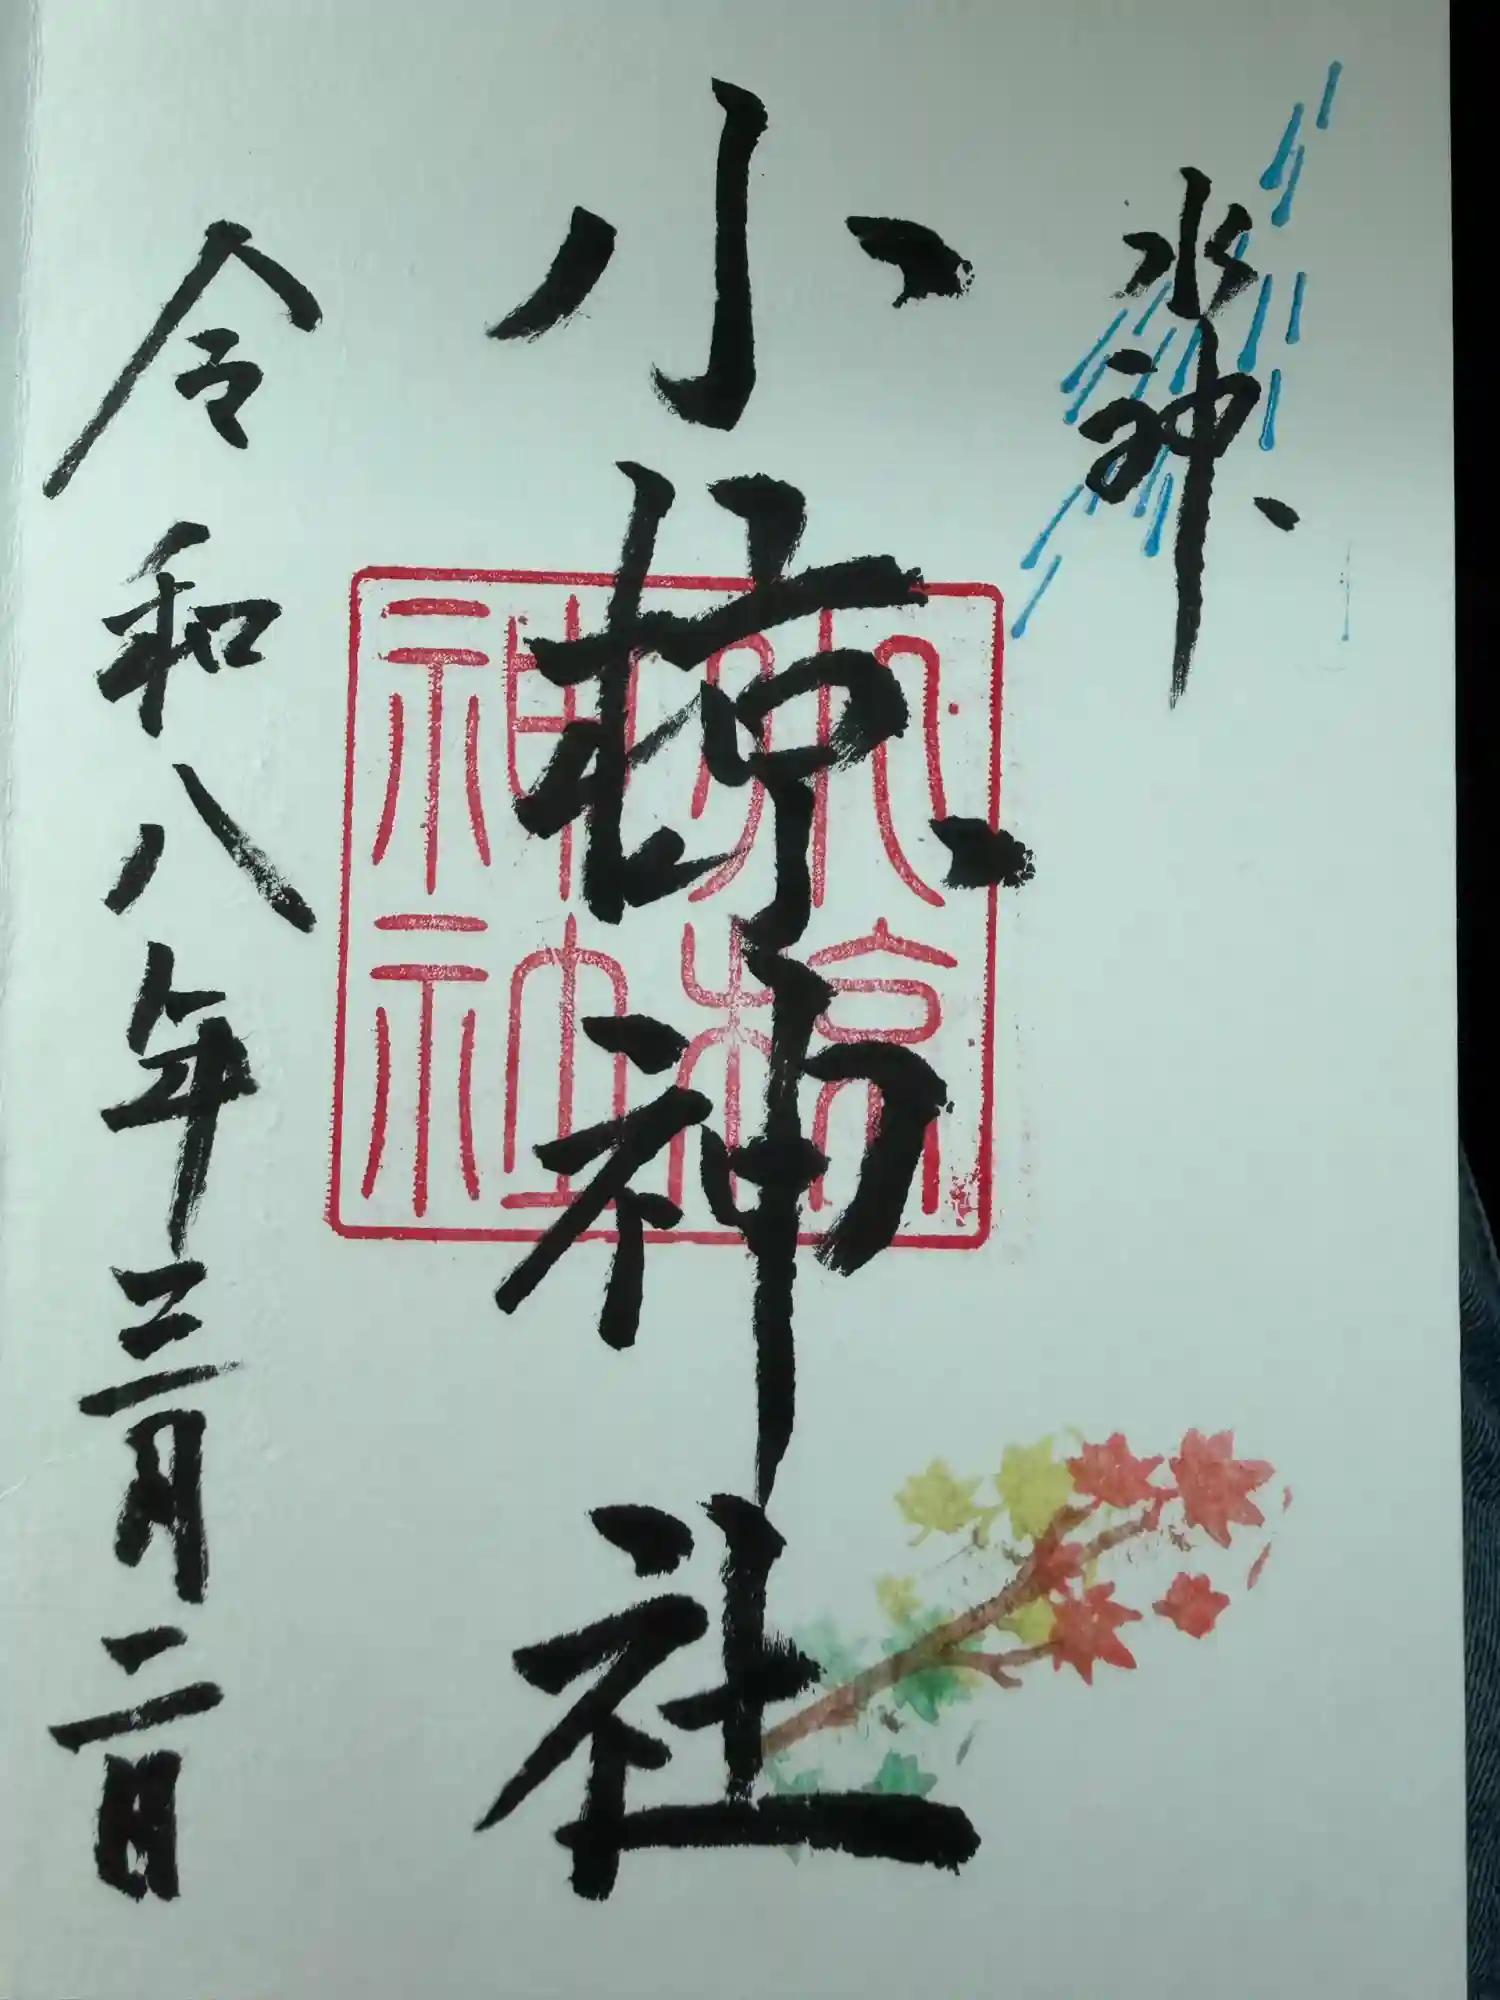 水神
小椋神社
令和八年三月二日
小椋
神社